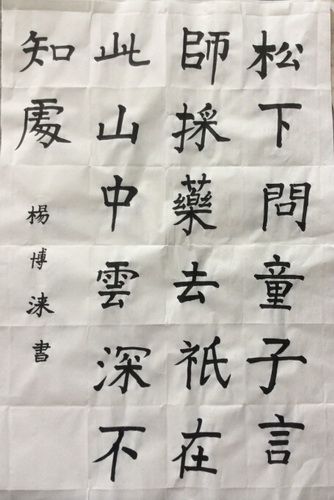 松下問童子言
師採藥去祇在
此山中雲深不
知處
楊博涞書